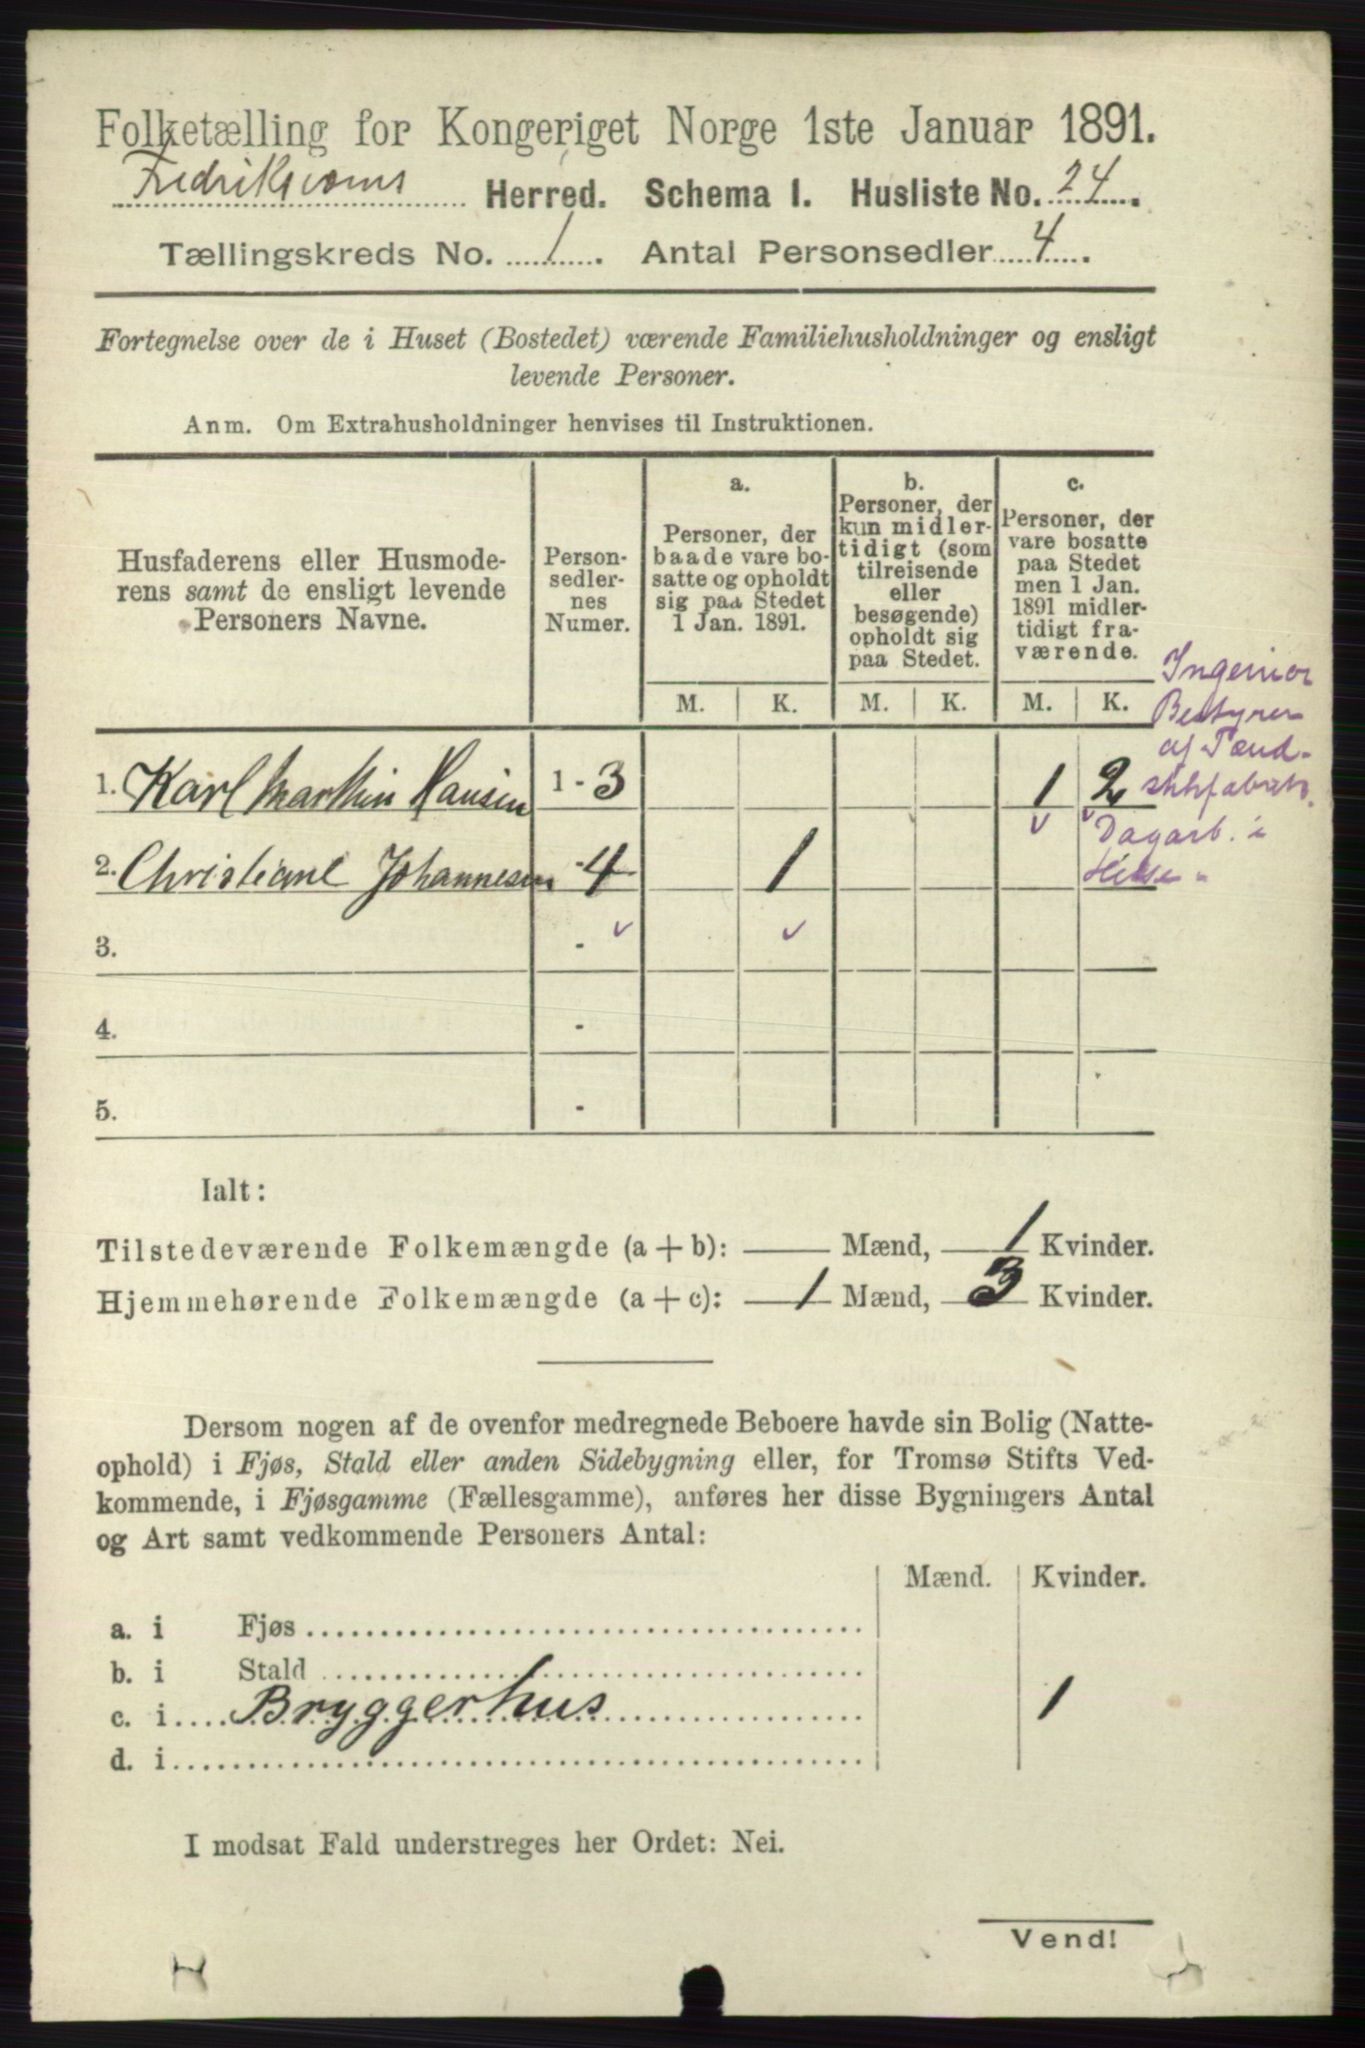 Folketælling for Kongeriget Norge 1ste Januar 1891.
Fredriksværns Herred. Schema I. Husliste No. 24.
Tællingskreds No. 1. Antal Personsedler 4.
Fortegnelse over de i Huset (Bostedet) værende Familiehusholdninger og ensligt
levende Personer.
Anm. Om Extrahusholdninger henvises til Instruktionen.
Husfaderens eller Husmode-
rens samt de ensligt levende
Personers Navne.
Person-
sedler-
nes
Numer.
a.
Personer, der
baade vare bo-
satte og opholdt
sig paa Stedet
1 Jan. 1891.
b.
Personer, der
kun midler-
tidigt (som
tilreisende
eller
besøgende)
opholdt sig
paa Stedet.
c.
Personer, der
vare bosatte
paa Stedet
men 1 Jan.
1891 midler-
tidigt fra-
værende.
M. K. M. K. M. K.
Ingeniør
Bestyrer
af Tænd-
stikfabrik.
1. Karl Martin Hansen 1 - 3 1 2
Dagarb. i
2. Christiane Johannesen - 4 1
3. -
4. -
5. -
Ialt:
Tilstedeværende Folkemængde (a + b): — Mænd, 1 Kvinder.
Hjemmehørende Folkemængde (a + c): 1 Mænd, 3 Kvinder.
Dersom nogen af de ovenfor medregnede Beboere havde sin Bolig (Natte-
ophold) i Fjøs, Stald eller anden Sidebygning eller, for Tromsø Stifts Ved-
kommende, i Fjøsgamme (Fællesgamme), anføres her disse Bygningers Antal
og Art samt vedkommende Personers Antal:
Mænd. Kvinder.
a. i Fjøs
b. i Stald
c. i Bryggerhus 1
d. i
I modsat Fald understreges her Ordet: Nei.
Vend!